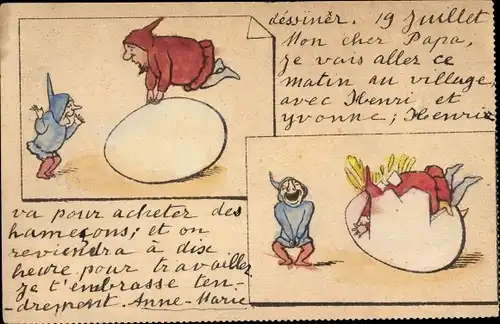 déssinér. 19 Juillet
Mon cher Papa,
je vais aller ce
matin au village
avec Henri et
yvonne; Henri
va pour acheter des
hameçons; et on
reviendra à dix
heure pour travailler
je t'embrasse ten-
drement. Anne-Marie